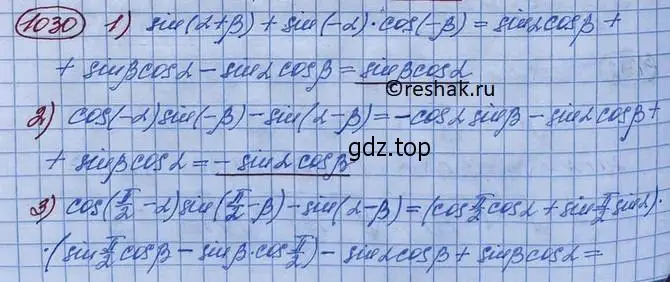 1030 1) sin(α+β) + sin(-α)·cos(-β) = sinα cosβ +
+ sinβ cosα - sinα cosβ = sinβ cosα
©reshak.ru
2) cos(-α) sin(-β) - sin(α-β) = -cosα sinβ - sinα cosβ +
+ sinβ cosα = - sinα cosβ
gdz.top
3) cos(π/2 - α) sin(π/2 - β) - sin(α-β) = (cos π/2 cosα + sin π/2 sinα)·
·(sin π/2 cosβ - sinβ·cos π/2) - sinα cosβ + sinβ cosα =